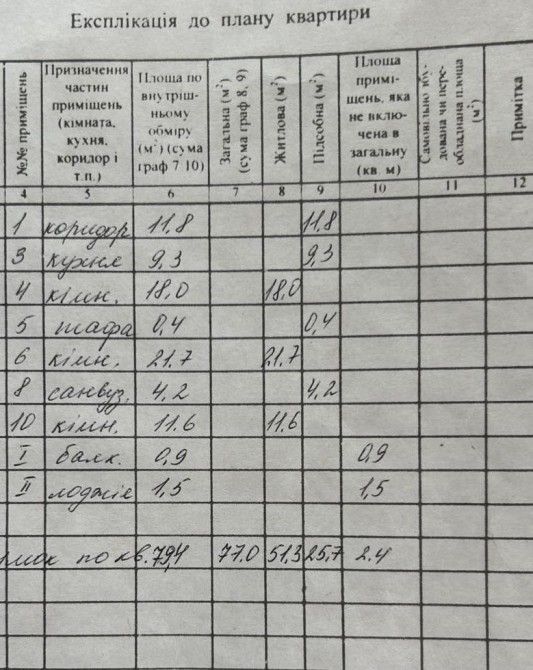 Експлікація до плану квартири
№№ приміщень | Призначення частин приміщень (кімната, кухня, коридор і т.п.) | Площа по внутріш-ньому обміру (м²) (сума граф 7 10) | Загальна (м²) (сума граф 8, 9) | Житлова (м²) | Підсобна (м²) | Площа примі-щень, яка не вклю-чена в загальну (кв. м) | Самовільно збу-дована чи пере-обладнана площа (м²) | Примітка
4 5 6 7 8 9 10 11 12
1 коридор 11,8 11,8
3 кухня 9,3 9,3
4 кімн. 18,0 18,0
5 шафа 0,4 0,4
6 кімн. 21.7 21.7
8 санвуз. 4,2 4,2
10 кімн. 11.6 11,6
I балк. 0,9 0,9
II лоджія 1,5 1,5
по кв. 79,4 77.0 51,3 25,7 2.4